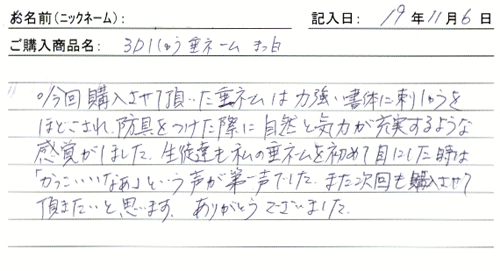 お名前(ニックネーム):
記入日: 19年11月6日
ご購入商品名: 3D刺しゅう垂ネーム まっ白
今回購入させて頂いた垂ネームは力強い書体に刺しゅうを
ほどこされ、防具をつけた際に自然と気力が充実するような
感覚がしました。生徒達も私の垂ネームを初めて目にした時は
「かっこいいなぁ」という声が第一声でした。また次回も購入させて
頂きたいと思います。ありがとうございました。